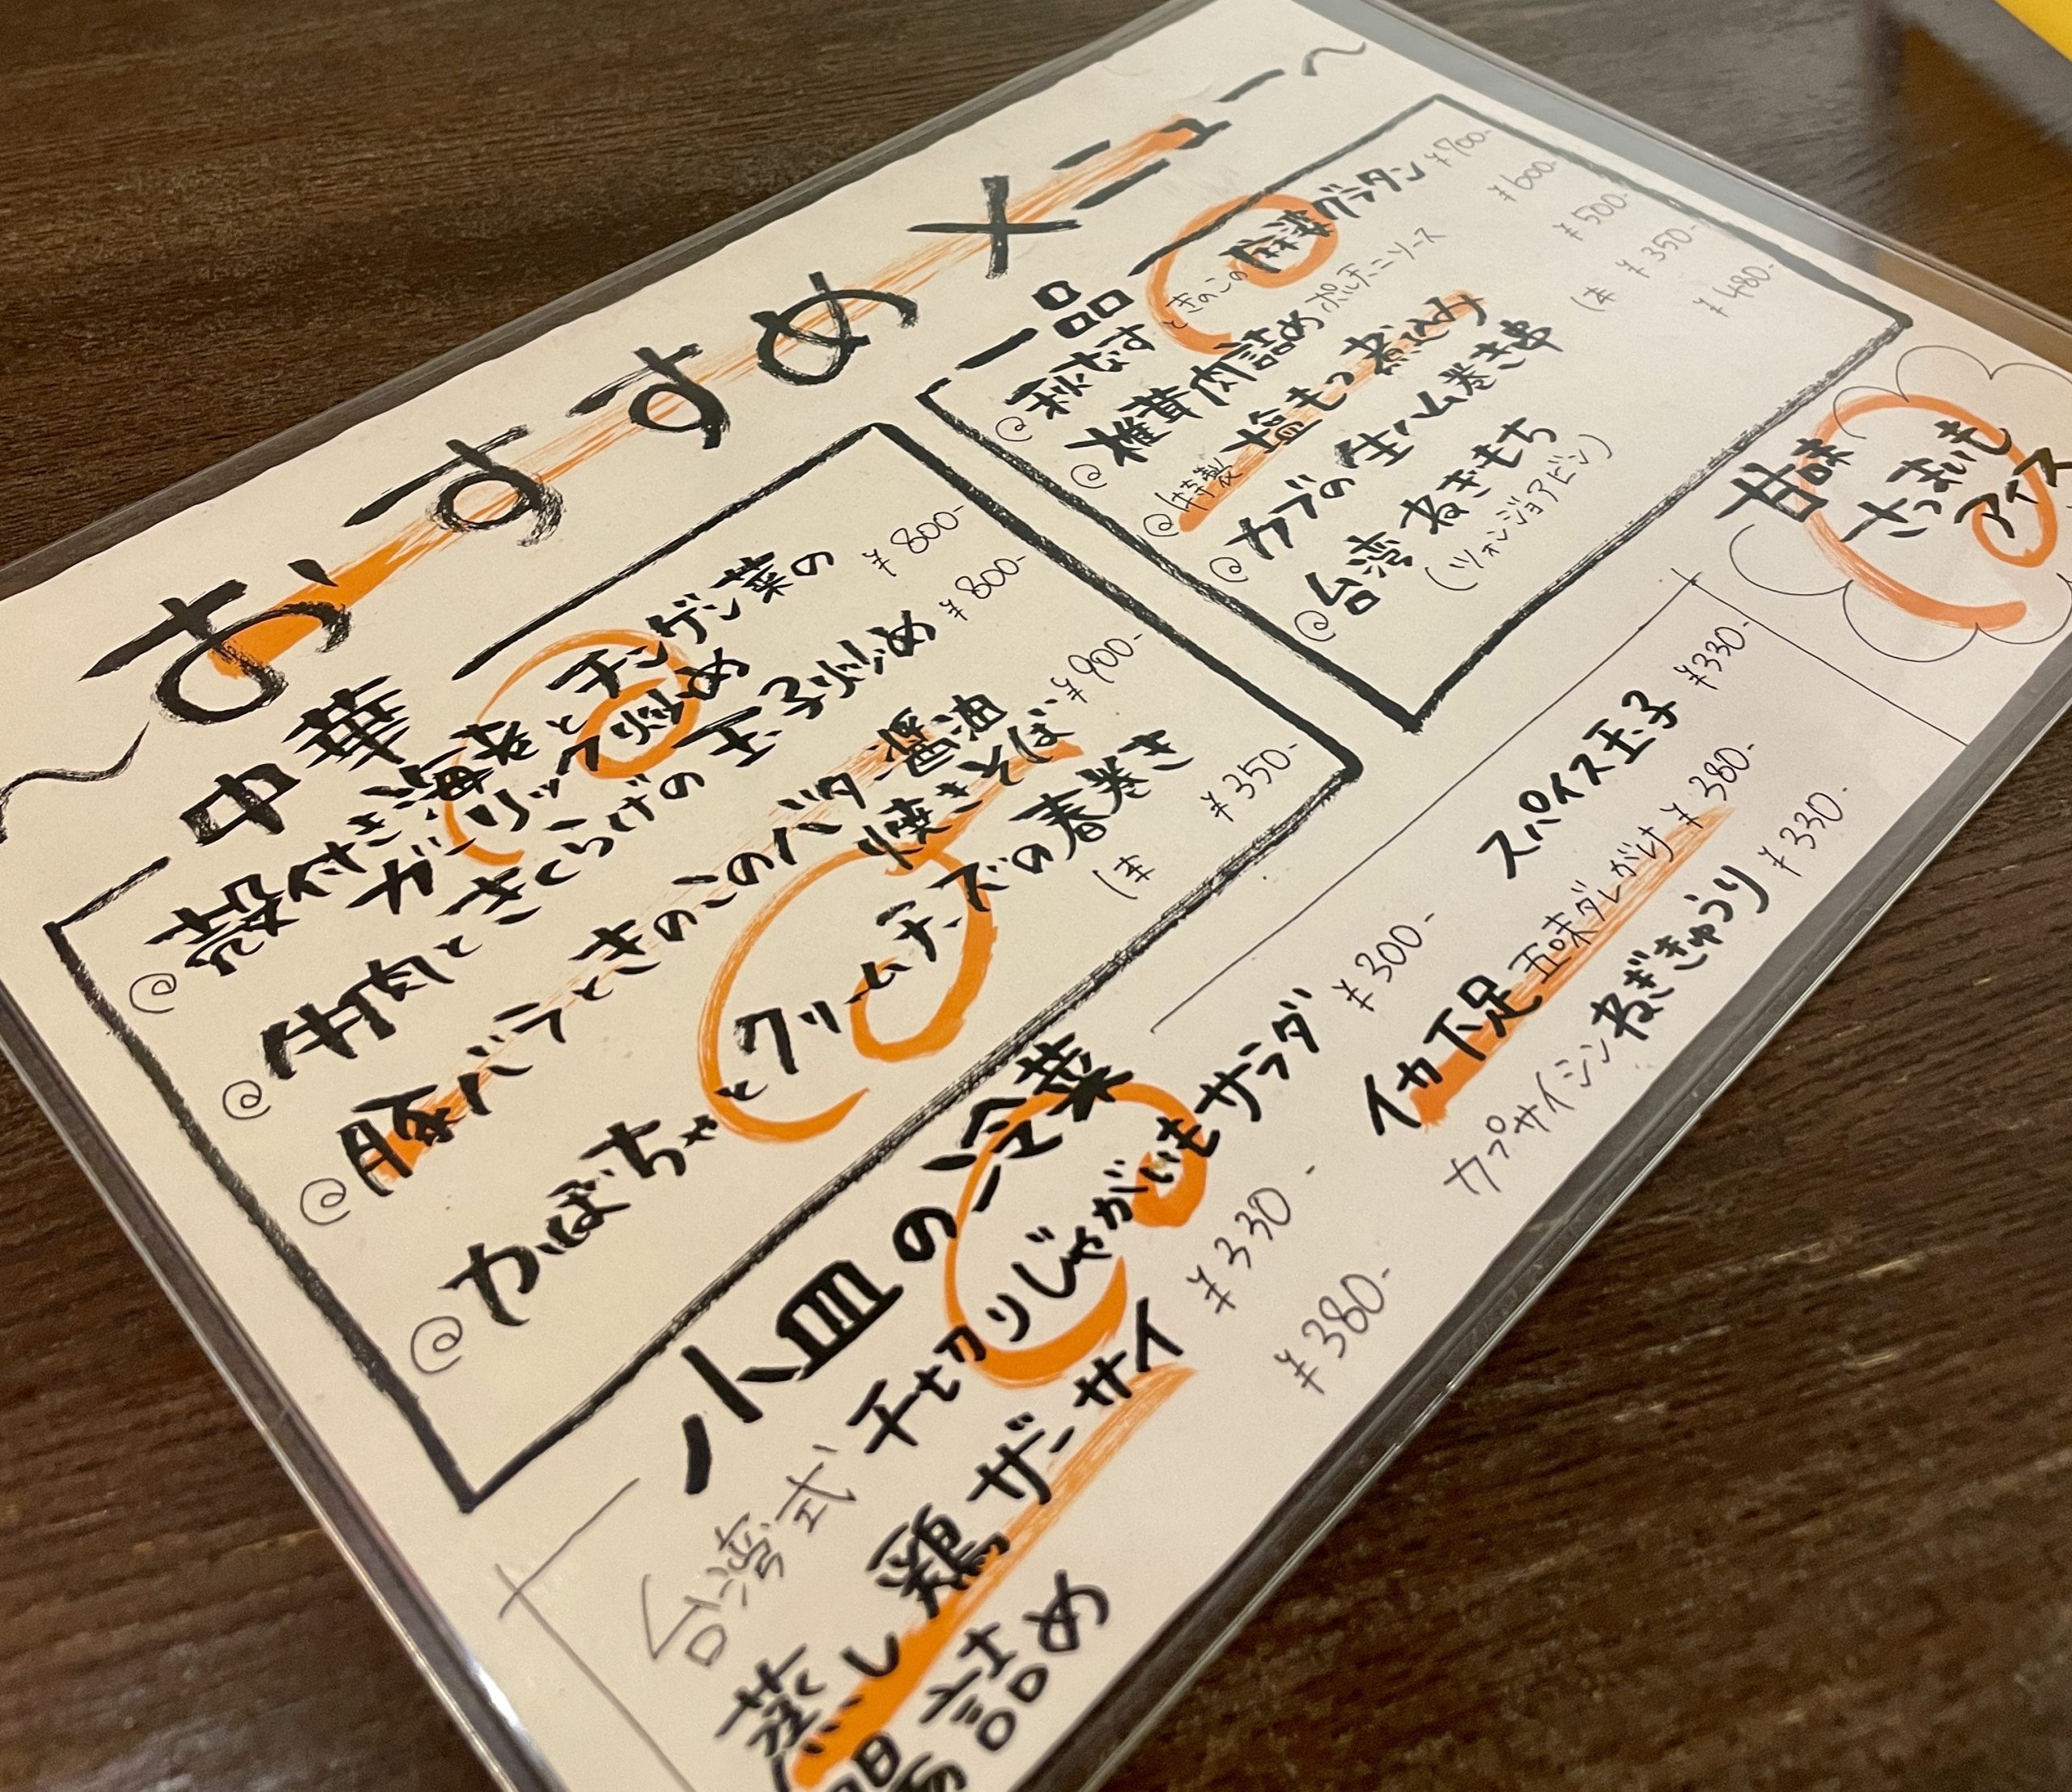 ～おすすめメニュー～
中華
殻付き海老とチンゲン菜の
ガーリック炒め ¥800-
牛肉ときくらげの玉子炒め ¥800-
豚バラときのこのバター醤油
焼きそば ¥900-
かぼちゃとクリームチーズの春巻き
1本 ¥350-
一品
秋なすときのこの麻婆グラタン ¥700-
椎茸肉詰めポルチーニソース ¥600-
特製 塩もつ煮込み ¥500-
カブの生ハム巻き串 1本 ¥350-
台湾ねぎもち ¥480-
(ツォンジョアビン)
甘味
さつまいも
アイス
小皿の冷菜
台湾式 千切りじゃがいもサラダ ¥300-
蒸し鶏ザーサイ ¥330-
詰め ¥380-
スパイス玉子 ¥330-
イカ下足 五味ダレがけ ¥380-
カプサイシンねぎきゅうり ¥330-